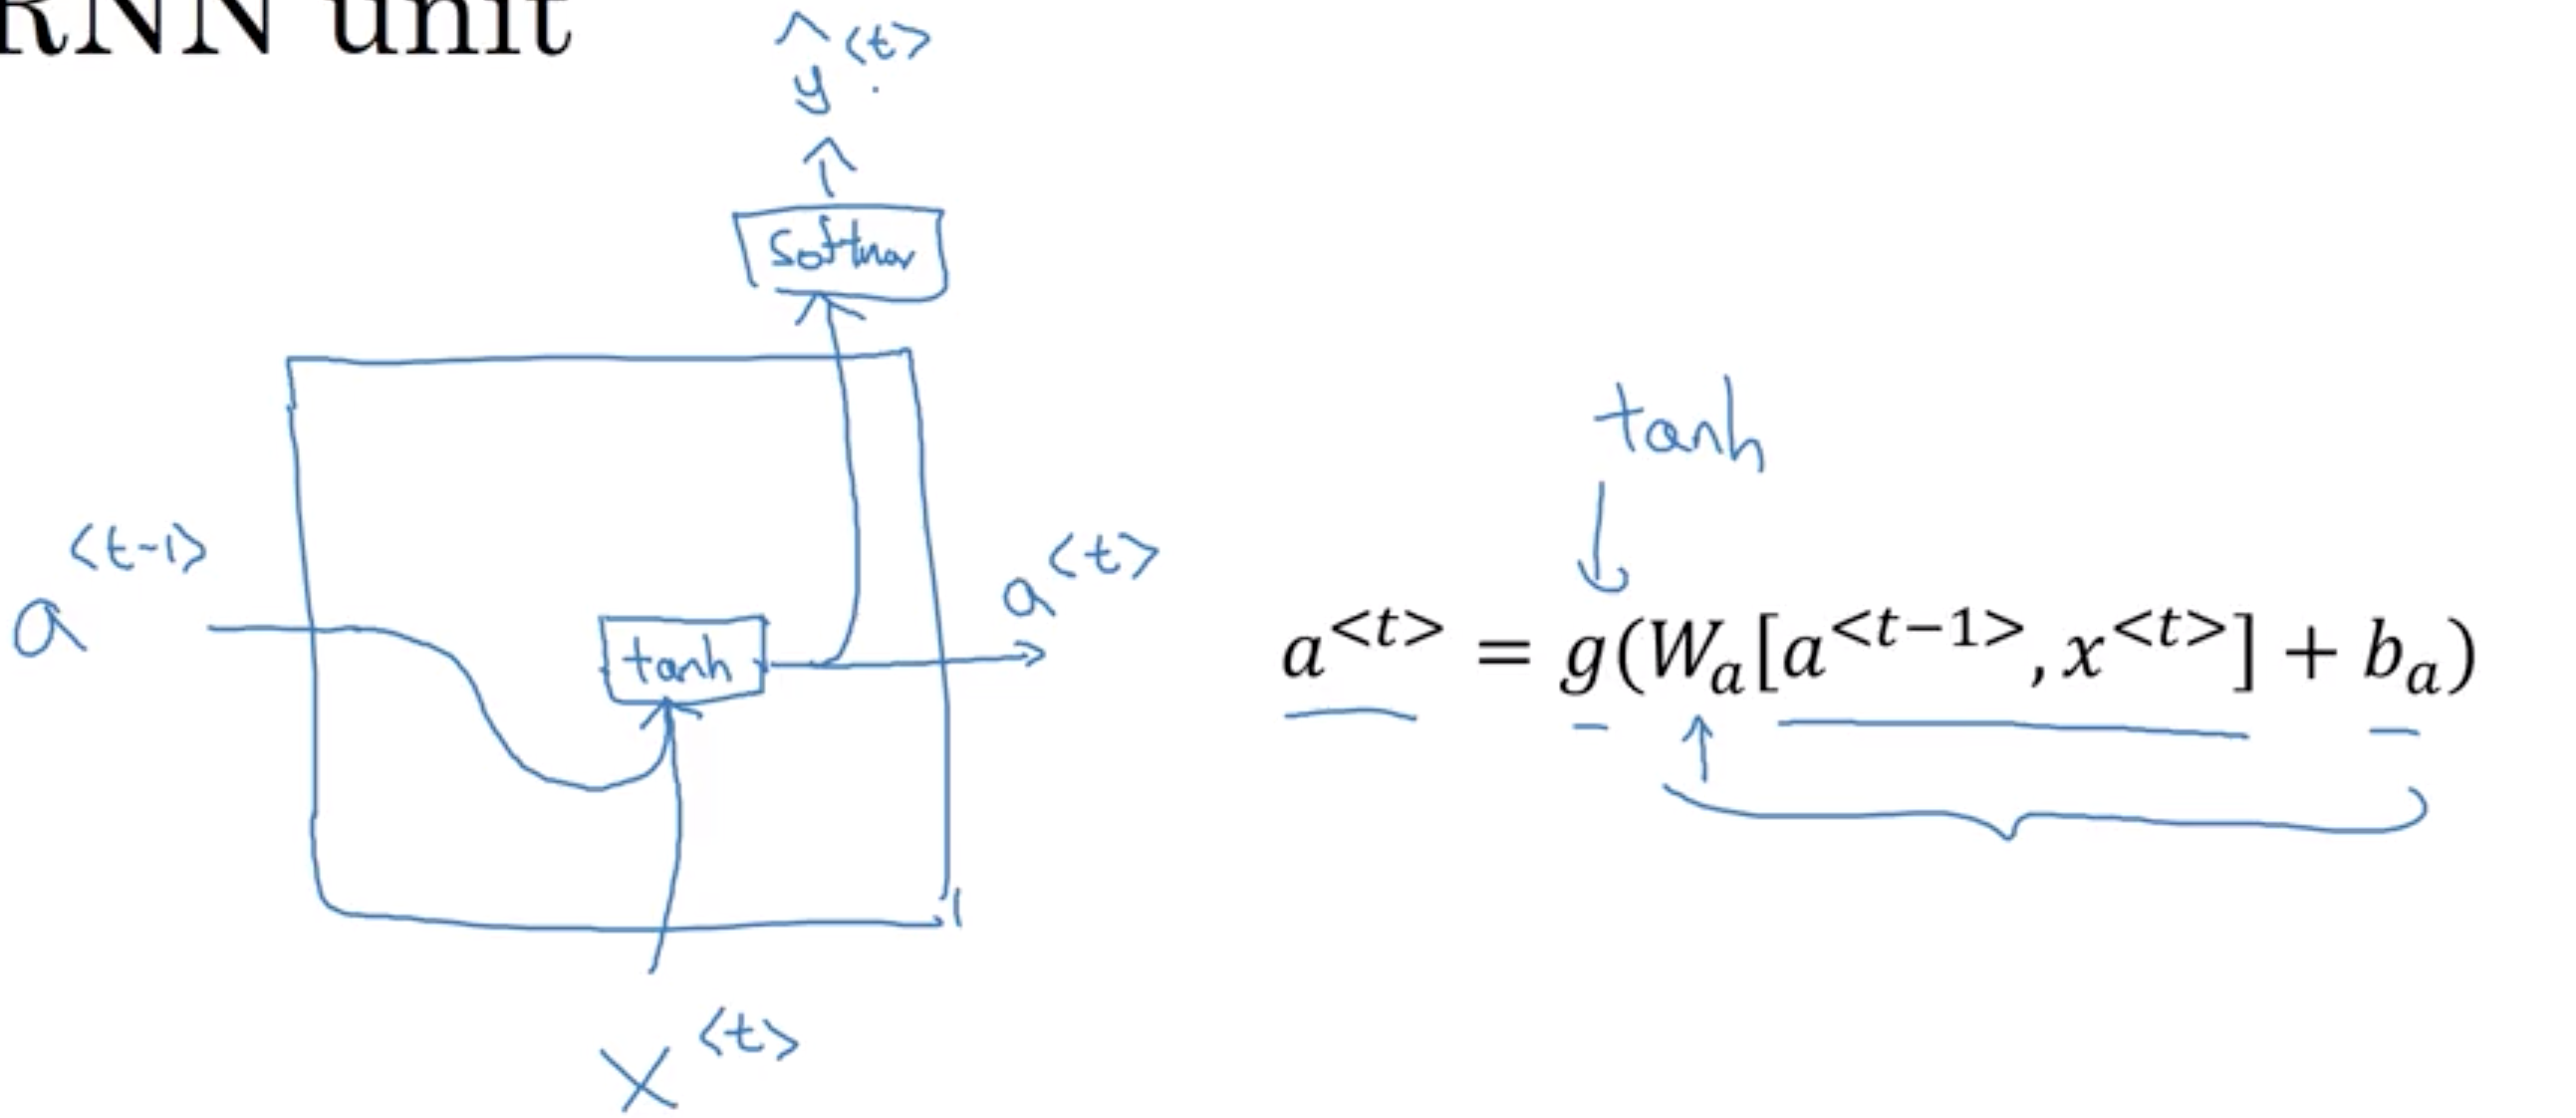 RNN unit
ŷ<t>
softmax
tanh
a<t-1>
a<t>
tanh
a<t> = g(Wₐ[a<t−1>, x<t>] + bₐ)
x<t>